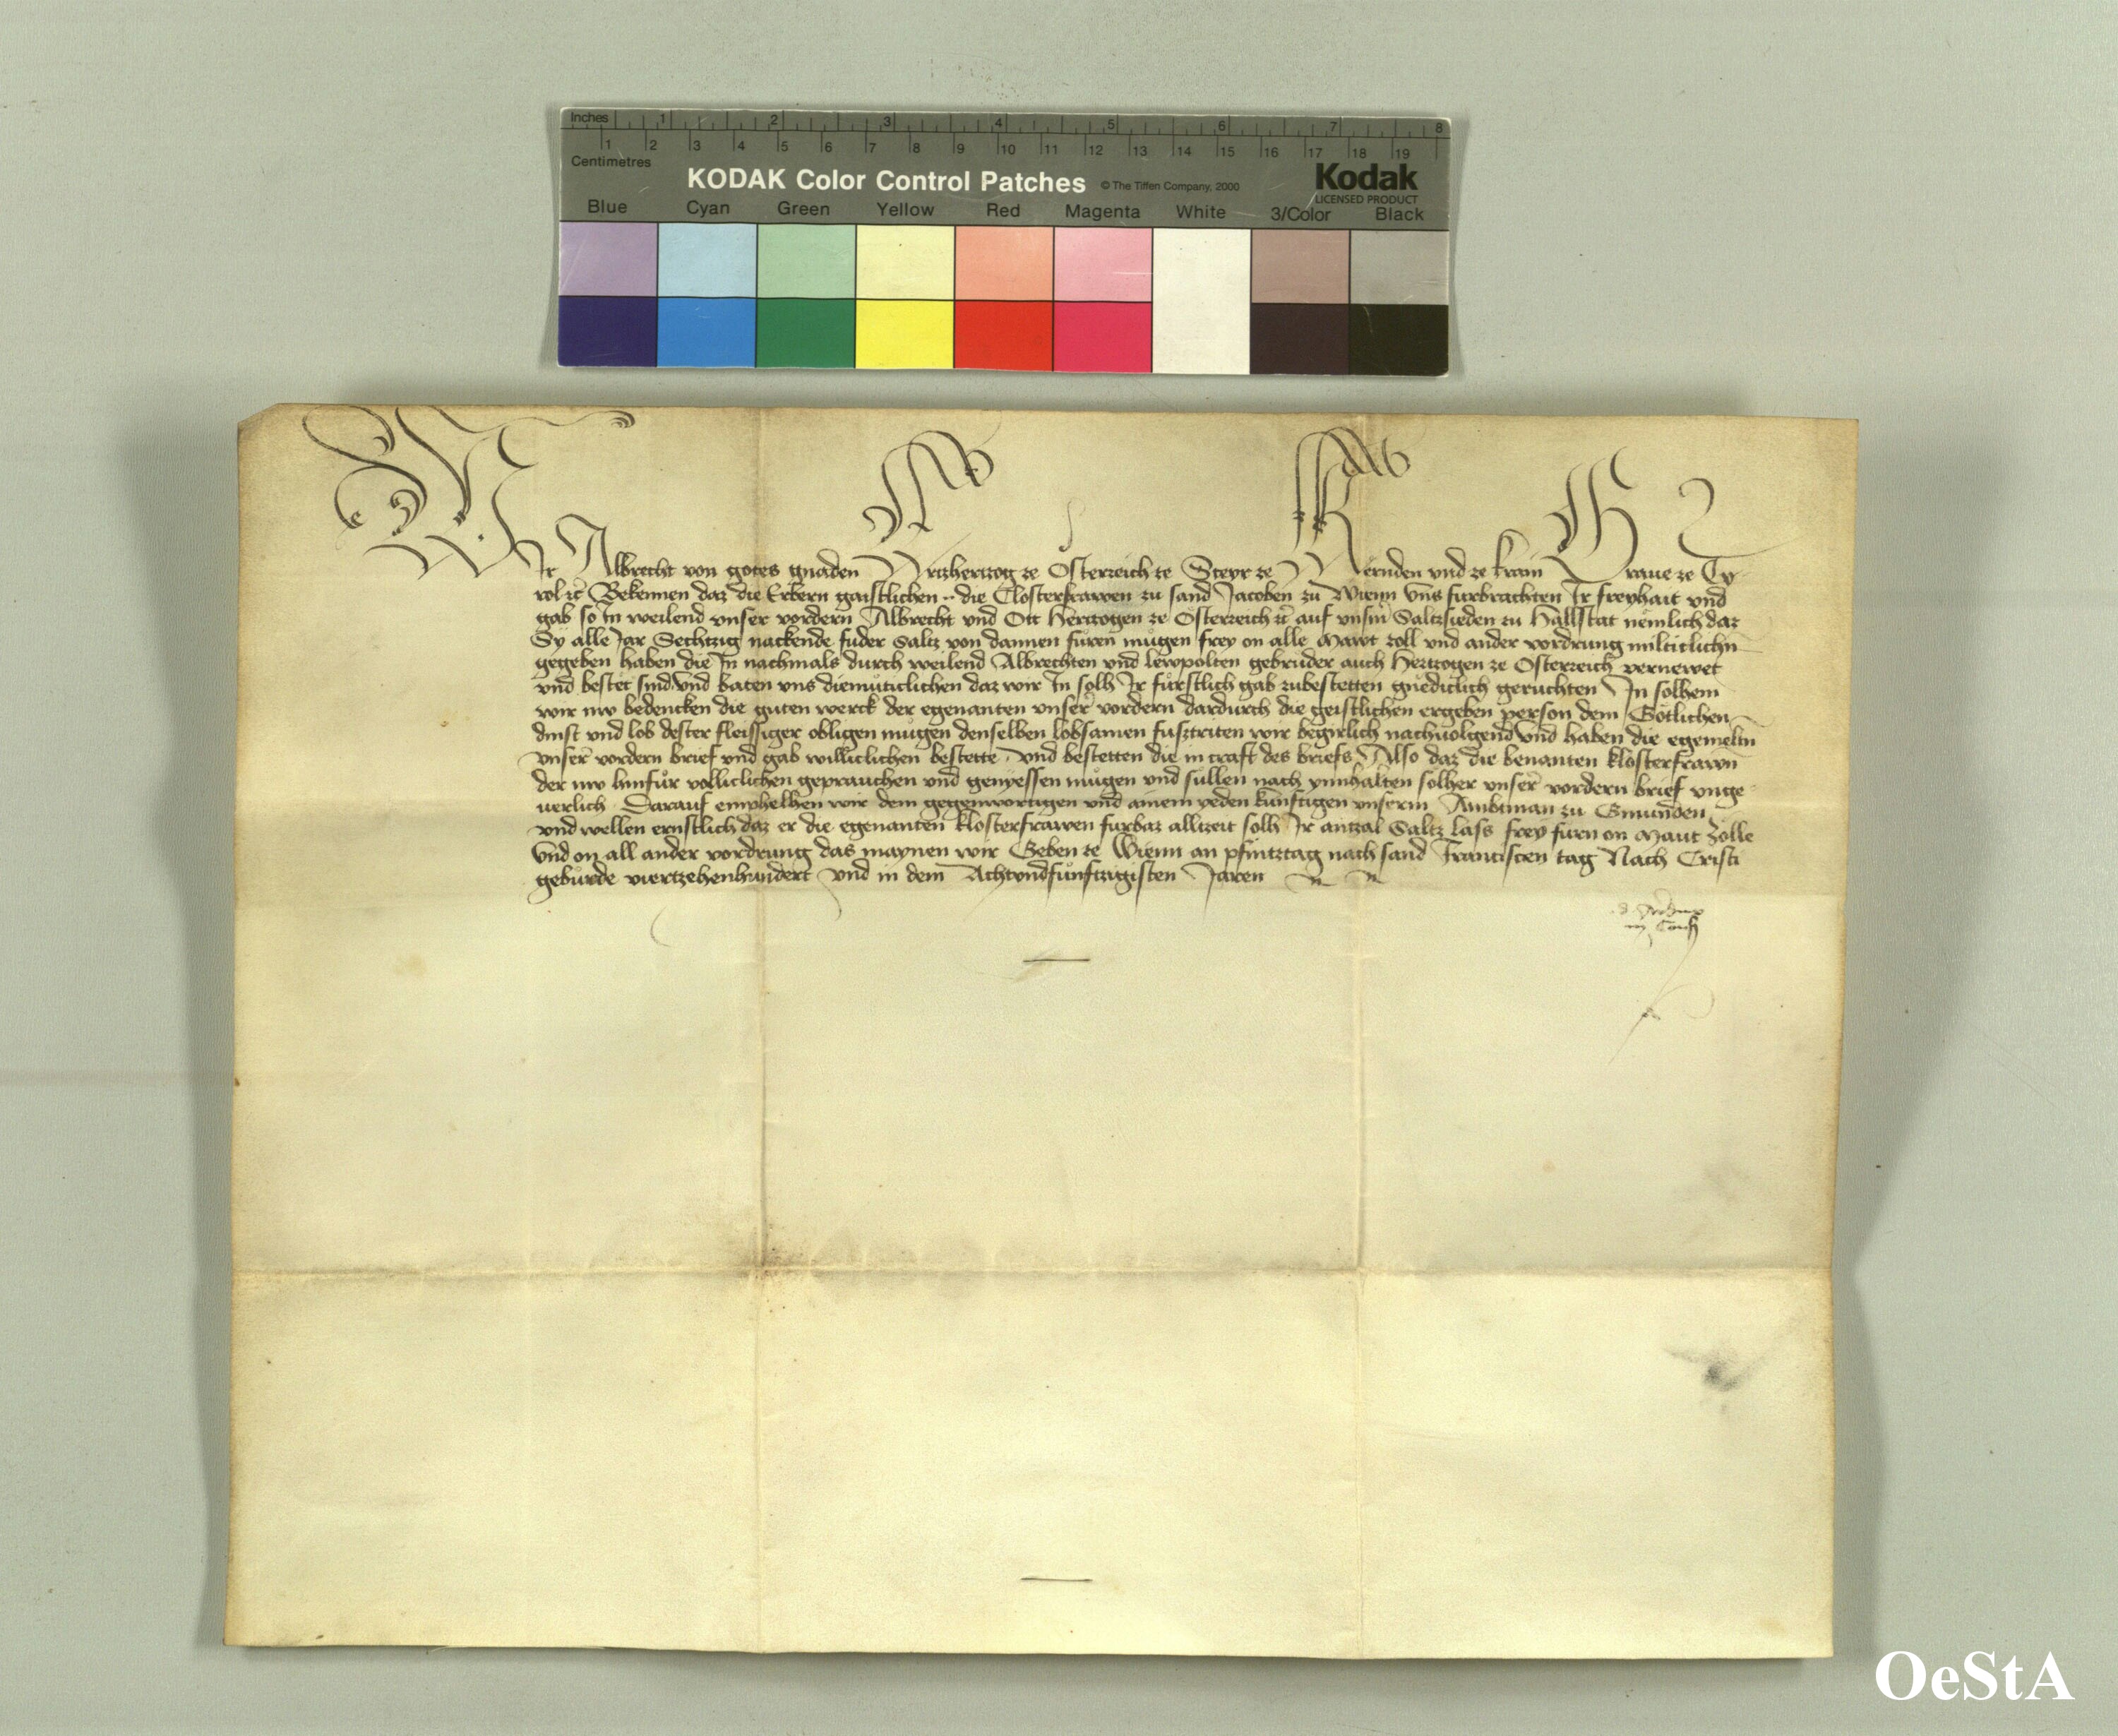 Inches 1 2 3 4 5 6 7 8
1 2 3 4 5 6 7 8 9 10 11 12 13 14 15 16 17 18 19
Centimetres
KODAK Color Control Patches © The Tiffen Company, 2000 Kodak
LICENSED PRODUCT
Blue Cyan Green Yellow Red Magenta White 3/Color Black
Wir Albrecht von gotes gnaden Ertzhertzog ze Österreich ze Steyr ze Kernden und ze Krain Graue ze Ty
rol etc̃ Bekennen daz die Erbern gaistlichen .. die Closterfrawen zu sand Jacoben zu Wienn vns furbrachten Ir freyhait vnd
gab so In weilend vnser vordern Albrecht vnd Ott Hertzogen ze Österreich etc̃ auf vnsm̄ Saltzsieden zu Hallstat nemlich daz
Sy alle Jar Sechtzig nackende fuder Saltz von dannen fůren mugen frey on alle Mawt zoll vnd ander vordrung milticlichn̄
gegeben haben die In nachmals durch weilend Albrechten vnd Lewpolten gebruder auch Hertzogen ze Österreich vernewet
vnd bestet sind vnd baten vns diemůticlichen daz wir In solh Ir fůrstlich gab zubestetten gnediclich geruchten In solhem
wir nw bedencken die guten werck der egenanten vnser̄ vordern dardurch die geistlichen ergeben person dem Götlichen
dinst vnd lob dester fleissiger obligen mugen denselben lobsamen fusztriten wir begirlich nachuolgend vnd haben die egemeltn̄
vnser̄ vordern brief vnd gab williclichen bestette vnd bestetten die in craft des briefs Also daz die benanten klosterfrawn̄
der nw hinfůr volliclichen geprauchen vnd genyessen mugen vnd sullen nach ynnhalten solher vnser̄ vordern brief vnge
uerlich Darauf emphelhen wir dem gegenwortigen vnd ainem yeden kunftigen vnserm Ambtman zu Gmunden
vnd wellen ernstlich daz er die egenanten klosterfrawen furbaz alltzeit solh Ir antzal Saltz lass frey furn on Maut Zölle
vnd on all ander vordrung das maynen wir Geben ze Wienn an pfintztag nach sand Franciscen tag Nach Cristi
gebůrde viertzehenhundert vnd in dem Achtvndfůnftzigisten Jaren
OeStA